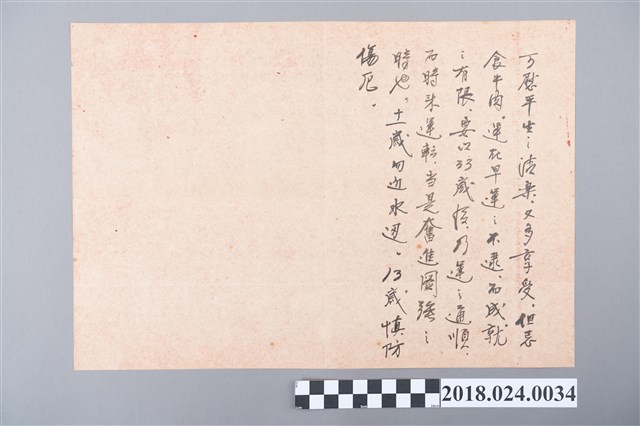 可慰平生之清樂。又多享受。但忌
食牛肉。運在早運之不逮。而成就
之有限。要以33歲後、乃運之通順、
而時來運轉、當是奮進圖強之
時也。十一歲勿近水邊。13歲慎防
傷厄。
2018.024.0034